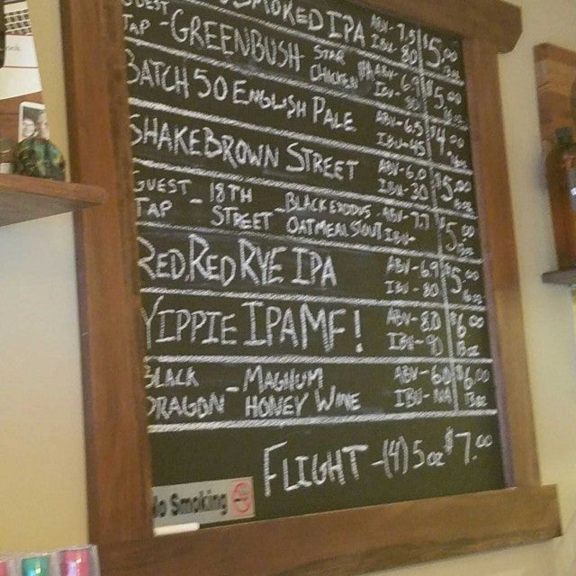 SMOKED IPA ABV-7.5 $5.00
IBU-80 13oz
GUEST TAP - GREENBUSH STAR CHICKEN ABV-6.9 $5.00
IBU-
BATCH 50 ENGLISH PALE ABV-6.5 $4.00
IBU-45
SHAKEBROWN STREET ABV-6.0 $5.00
IBU-30
GUEST TAP - 18TH STREET - BLACK EXODUS OATMEAL STOUT ABV-7.7 $5.00
IBU-
RED, RED RYE IPA ABV-6.9 $5.00
IBU-80 16oz
YIPPIE IPAMF! ABV-8.0 $6.00
IBU-90 13oz
BLACK DRAGON - MAGNUM HONEY WINE ABV-6.0 $6.00
IBU-NA 13oz
FLIGHT -(4) 5oz $7.00
No Smoking